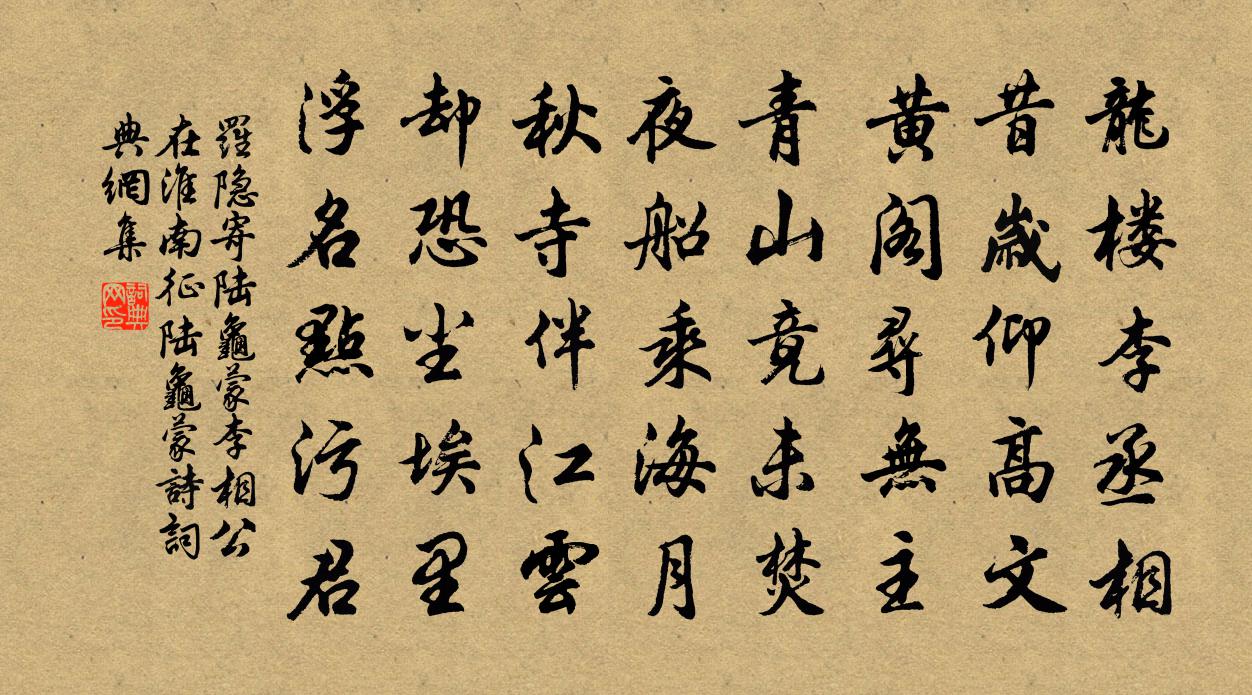 龍楼李丞相
昔歲仰高文
黄阁尋無主
青山竟未焚
夜船乘海月
秋寺伴江雲
却恐尘埃里
浮名點污君
羅隐寄陆龜蒙李相公
在淮南征陆龜蒙詩詞
典網集
詞典
网印